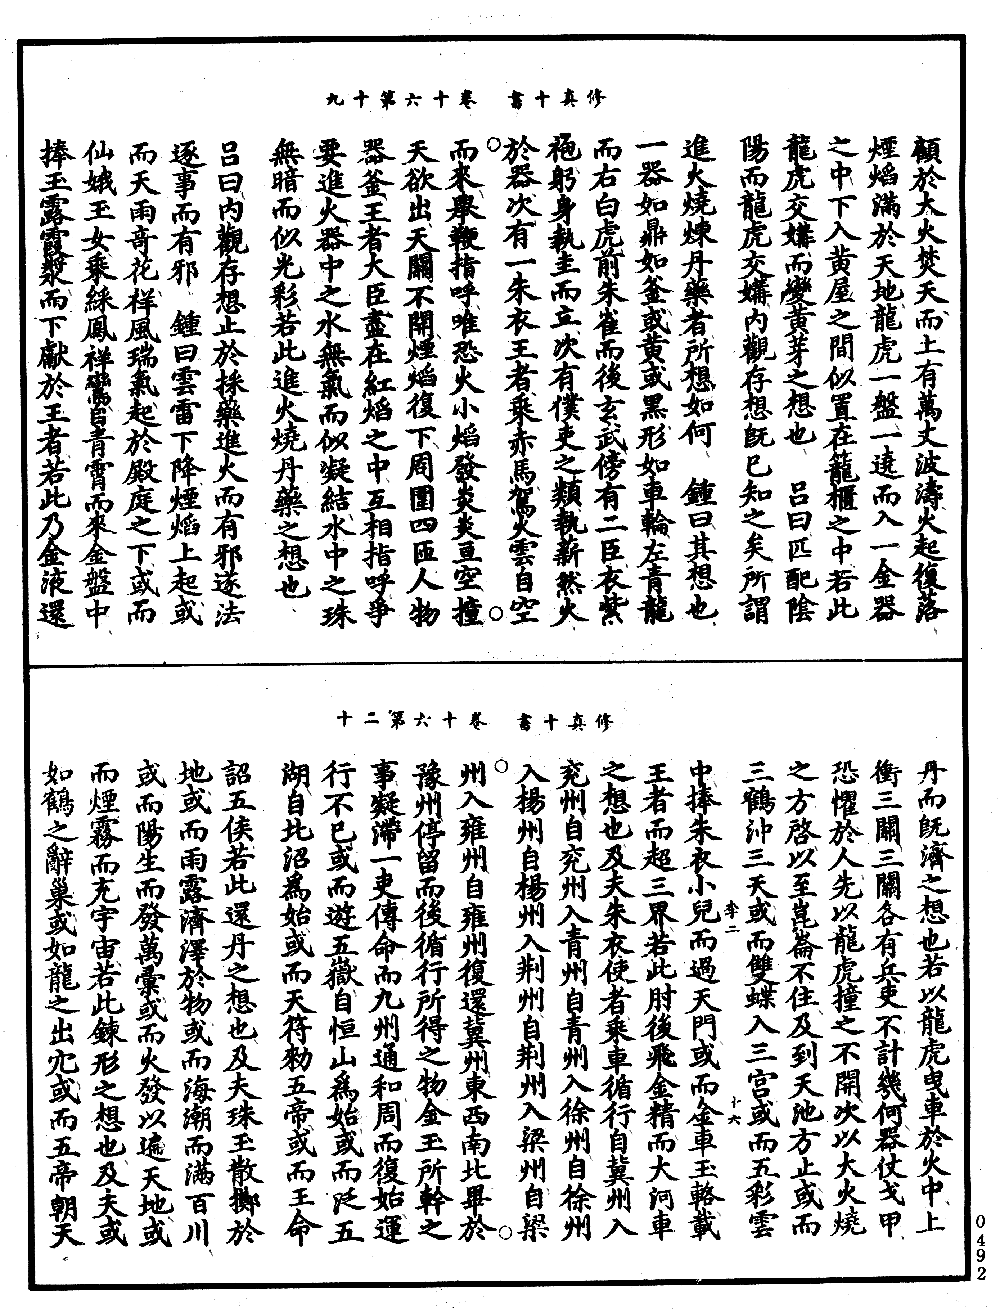 修真十書　卷十六第十九
顧於大火焚天而上有萬丈波濤火起復落
煙焰滿於天地龍虎一盤一遶而入一金器
之中下入黃屋之間似置在籠櫃之中若此
龍虎交媾而變黃芽之想也　呂曰匹配陰
陽而龍虎交媾內觀存想既已知之矣所謂
進火燒煉丹藥者所想如何　鍾曰其想也
一器如鼎如釜或黃或黑形如車輪左青龍
而右白虎前朱雀而後玄武傍有二臣衣紫
袍躬身執圭而立次有僕吏之類執薪然火
於器次有一朱衣王者乘赤馬駕火雲自空
而來舉鞭指呼唯恐火小焰發炎炎亘空撞
天欲出天關不開煙焰復下周圍四匝人物
器釜王者大臣盡在紅焰之中互相指呼爭
要進火器中之水無氣而似凝結水中之珠
無暗而似光彩若此進火燒丹藥之想也
呂曰內觀存想止於採藥進火而有邪逐法
逐事而有邪　鍾曰雲雷下降煙焰上起或
而天雨奇花祥風瑞氣起於殿庭之下或而
仙娥玉女乘綵鳳祥鸞自青霄而來金盤中
捧玉露霞漿而下獻於王者若此乃金液還
修真十書　卷十六第二十
丹而既濟之想也若以龍虎曳車於火中上
衝三關三關各有兵吏不計幾何器仗戈甲
恐懼於人先以龍虎撞之不開次以大火燒
之方啓以至崑崙不住及到天池方止或而
三鶴沖三天或而雙蝶入三宮或而五彩雲
中捧朱衣小兒而過天門或而金車玉輅載
王者而超三界若此肘後飛金精而大河車
之想也及夫朱衣使者乘車循行自冀州入
兗州自兗州入青州自青州入徐州自徐州
入楊州自楊州入荆州自荆州入梁州自梁
州入雍州自雍州復還冀州東西南北畢於
豫州停留而後循行所得之物金玉所幹之
事凝滯一吏傳命而九州通和周而復始運
行不已或而遊五嶽自恒山爲始或而泛五
湖自北沼爲始或而天符勑五帝或而王命
詔五侯若此還丹之想也及夫珠玉散擲於
地或而雨露濟澤於物或而海潮而滿百川
或而陽生而發萬彙或而火發以遍天地或
而煙霧而充宇宙若此鍊形之想也及夫或
如鶴之辭巢或如龍之出穴或而五帝朝天
0492